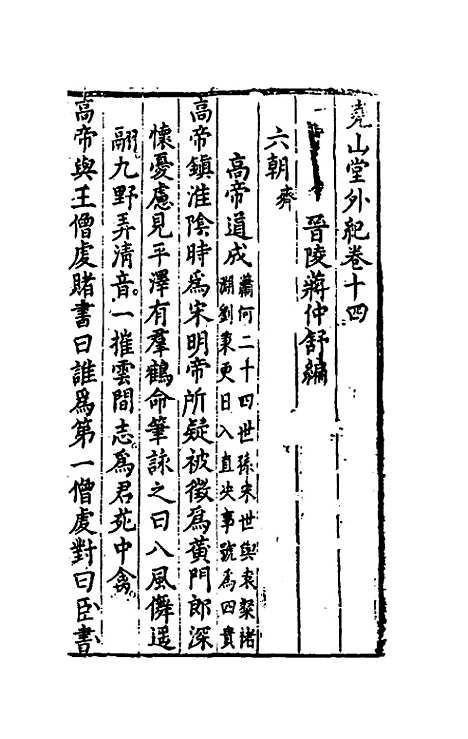 堯山堂外紀卷十四
晉陵蔣仲舒編
六朝齊
高帝道成蕭何二十四世孫宋世與袁粲褚
淵劉秉更日入直決事號爲四貴
高帝鎮淮陰時爲宋明帝所疑被徵爲黃門郎深
懷憂慮見平澤有羣鶴命筆詠之曰八風儛遥
翮九野弄清音一摧雲間志爲君苑中禽
高帝與王僧虔賭書曰誰爲第一僧虔對曰臣書